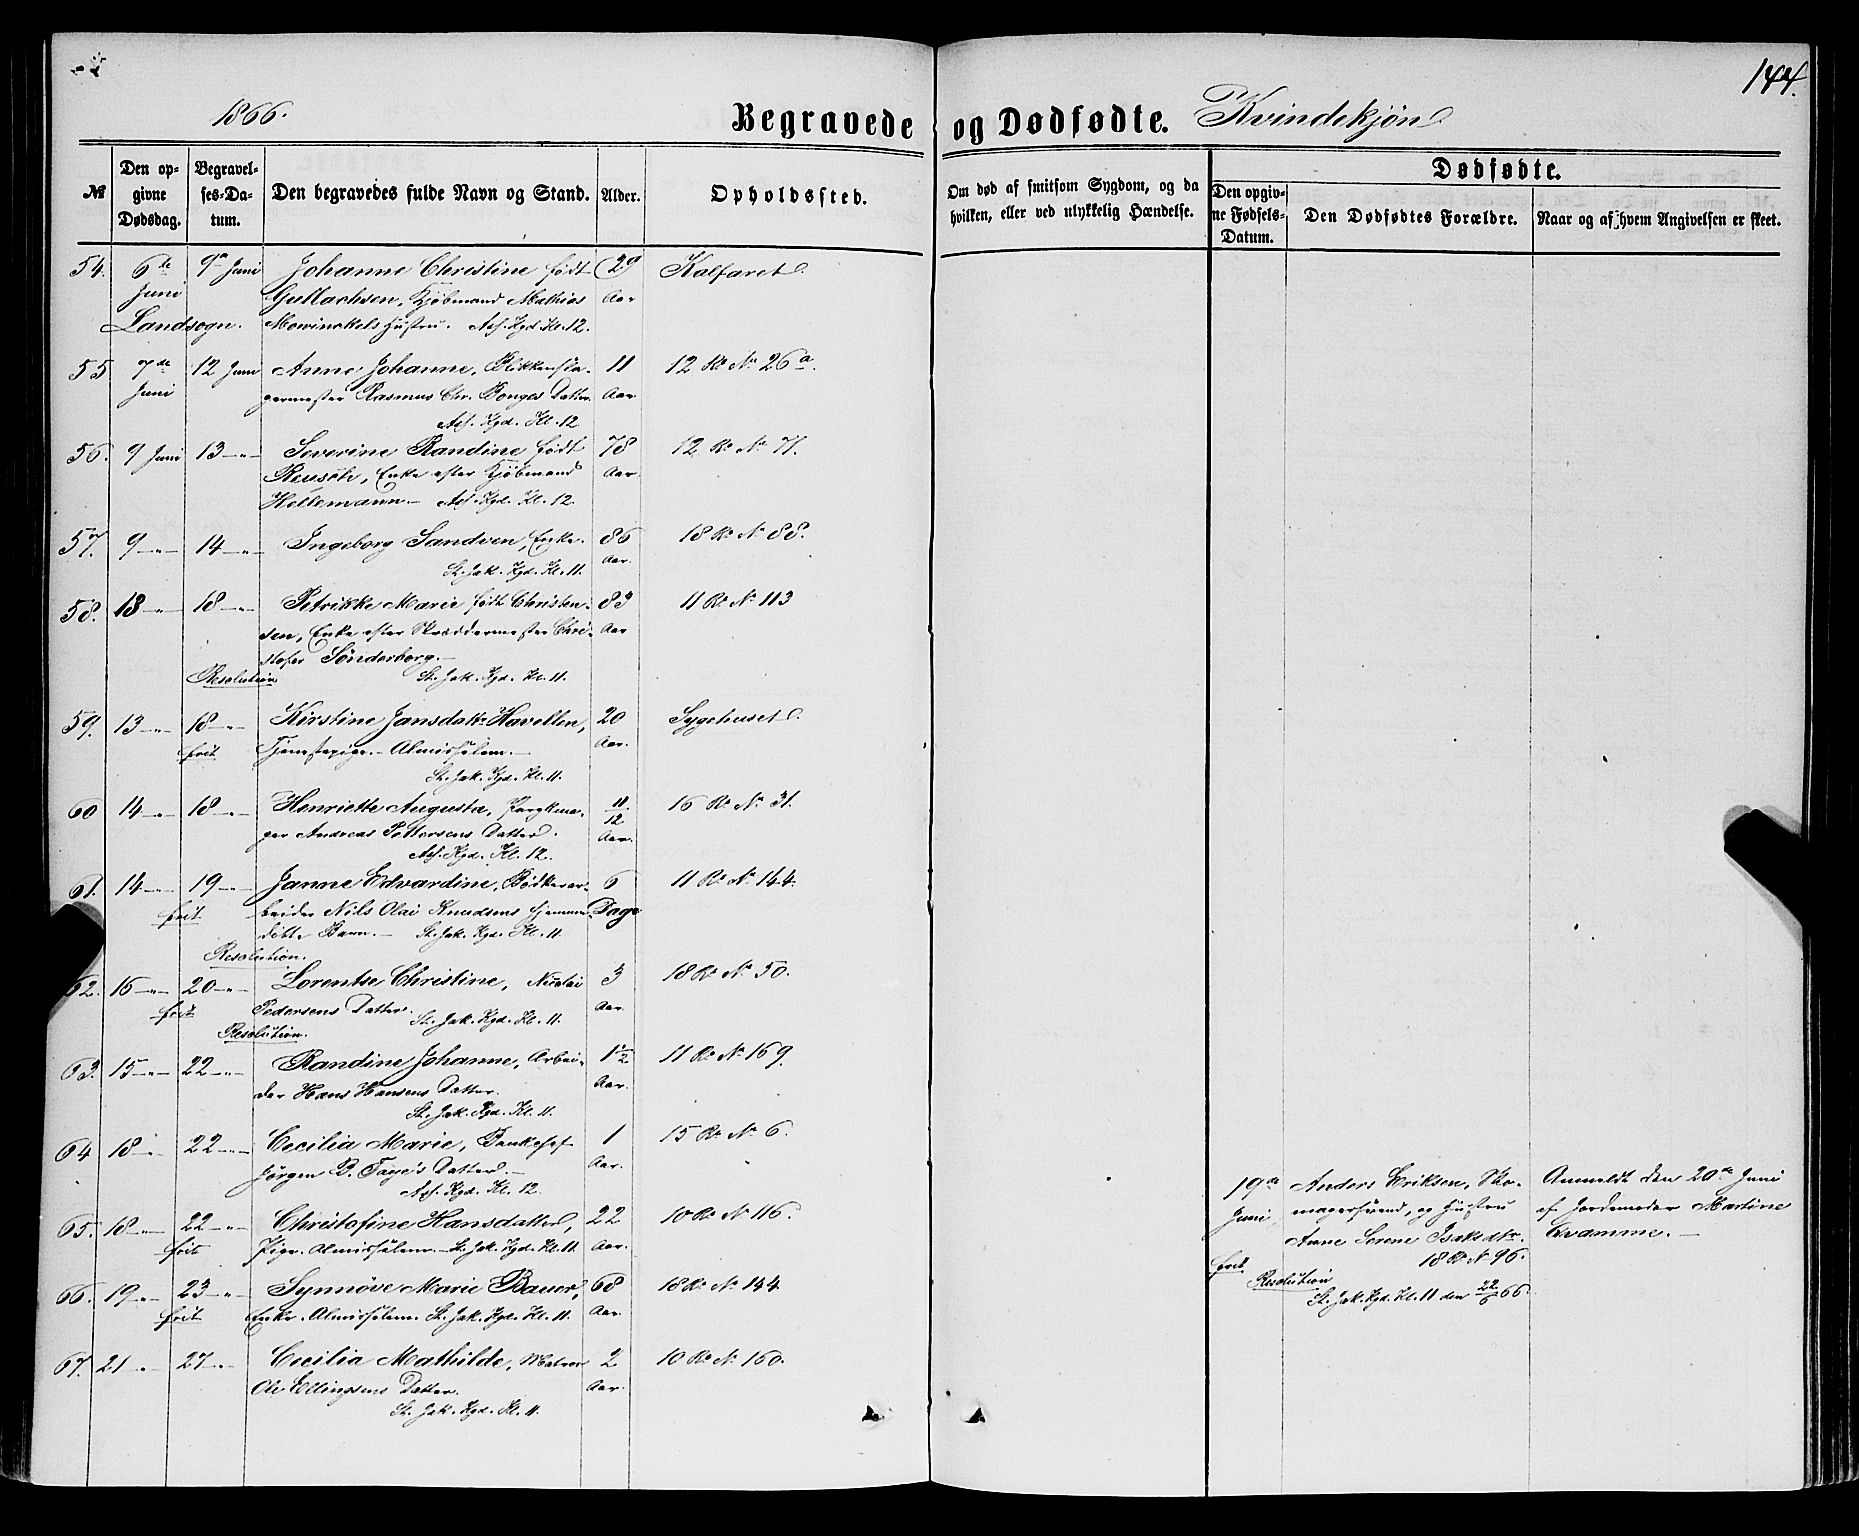 144.
1866.
Begravede og Dødfødte. Kvindekjøn
№
Den opgivne Dødsdag.
Begravelses-Datum.
Den begravedes fulde Navn og Stand.
Alder.
Opholdssted.
Om død af smitsom Sygdom, og da hvilken, eller ved ulykkelig Hændelse.
Dødfødte.
Den opgivne Fødsels-Datum.
Den Dødfødtes Forældre.
Naar og af hvem Angivelsen er skeet.
54. 6te 9de Juni Johanne Christine født 29 Kalfaret
Juni Gullachsen, Kjøbmand Mathias Aar
Landsogn. Mowinckels Hustru. Ass. Kgd. Kl. 12.
55 7de 12 Juni Anne Johanne, Blikkensla- 11 12 Rd. No. 26a.
Juni germester Rasmus Chr. Bonges Datter. Aar
Ass. Kgd. Kl. 12
56. 9 Juni 13 —„— Severine Randine født 78 12 Rd. No. 71.
Reusch, Enke efter Kjøbmand Aar.
Hellemann.— Ass. Kgd. Kl. 12.
57. 9 —„— 14 —„— Ingeborg Sandven, Enke. 86 18 Rd. No. 88.
St. Jak. Kgd. Kl. 11. Aar.
58. 13 „ 18 —„— Petrikke Marie født Christen- 83 11 Rd. No. 113
sen, Enke efter Skræddermester Chri- Aar
stofer Sönderborg.—
Resolution St. Jak. Kgd. Kl. 11.
59. 13 —„— 18 —„— Kirstine Jansdatr. Havellen, 20 Sygehuset.
frit Tjenestepige.— Almisselem.— Aar.
St. Jak. Kgd. Kl. 11.
60 14 —„— 18 —„— Henriette Augusta, 11/12 16 Rd. No. 31.
ger Andreas Pettersens Datter. Aar.
Ass. Kgd. Kl. 12.
61. 14 —„— 19 —„— Janne Edvardine, Bödkerar- 6 11 Rd. No. 144.
frit beider Nils Olai Knudsens hjemme- Dage
döbte Barn.— St. Jak. Kgd. Kl. 11.
Resolution.
62. 16 —„— 20 —„— Lorentse Christine, Nicolai 3 18 Rd. No. 50.
frit Pedersens Datter. Aar.
Resolution. St. Jak. Kgd. Kl. 11.
63. 15 —„— 22 —„— Randine Johanne, Arbei- 1½ 11 Rd. No. 169.
der Hans Hansens Datter. Aar.
St. Jak. Kgd. Kl. 11.
64 18 „ 22 —„— Cecilia Marie, Bankchef 1 15 Rd. No. 6.
Jørgen B. Faye's Datter.— Aar.
Ass. Kgd. Kl. 12.
65. 18 —„— 22 —„— Christofine Hansdatter, 22 10 Rd. N. 116.
frit Pige. Almisselem.— St. Jak. Kgd. Kl. 11. Aar.
66. 19 —„— 23 —„— Synnöve Marie Bauer, 68 18 Rd. No. 144
frit Enke. Almisselem. St. Jak. Kgd. Kl. 11. Aar.
67. 21 „ 27 —„— Cecilia Mathilde, Matros 2 10 Rd. No. 160.
Ole Ellingsens Datter. Aar.
St. Jak. Kgd. Kl. 11.
19de Anders Eriksen, Sko- Anmeldt den 20de Juni
Juni magersvend, og Hustru af Jordemoder Martine
Anne Serene Isaksdtr. Kvamme.—
frit 18 Rd. N. 96.
Resolution
St. Jak. Kgd. Kl. 11 den 22/6 66.